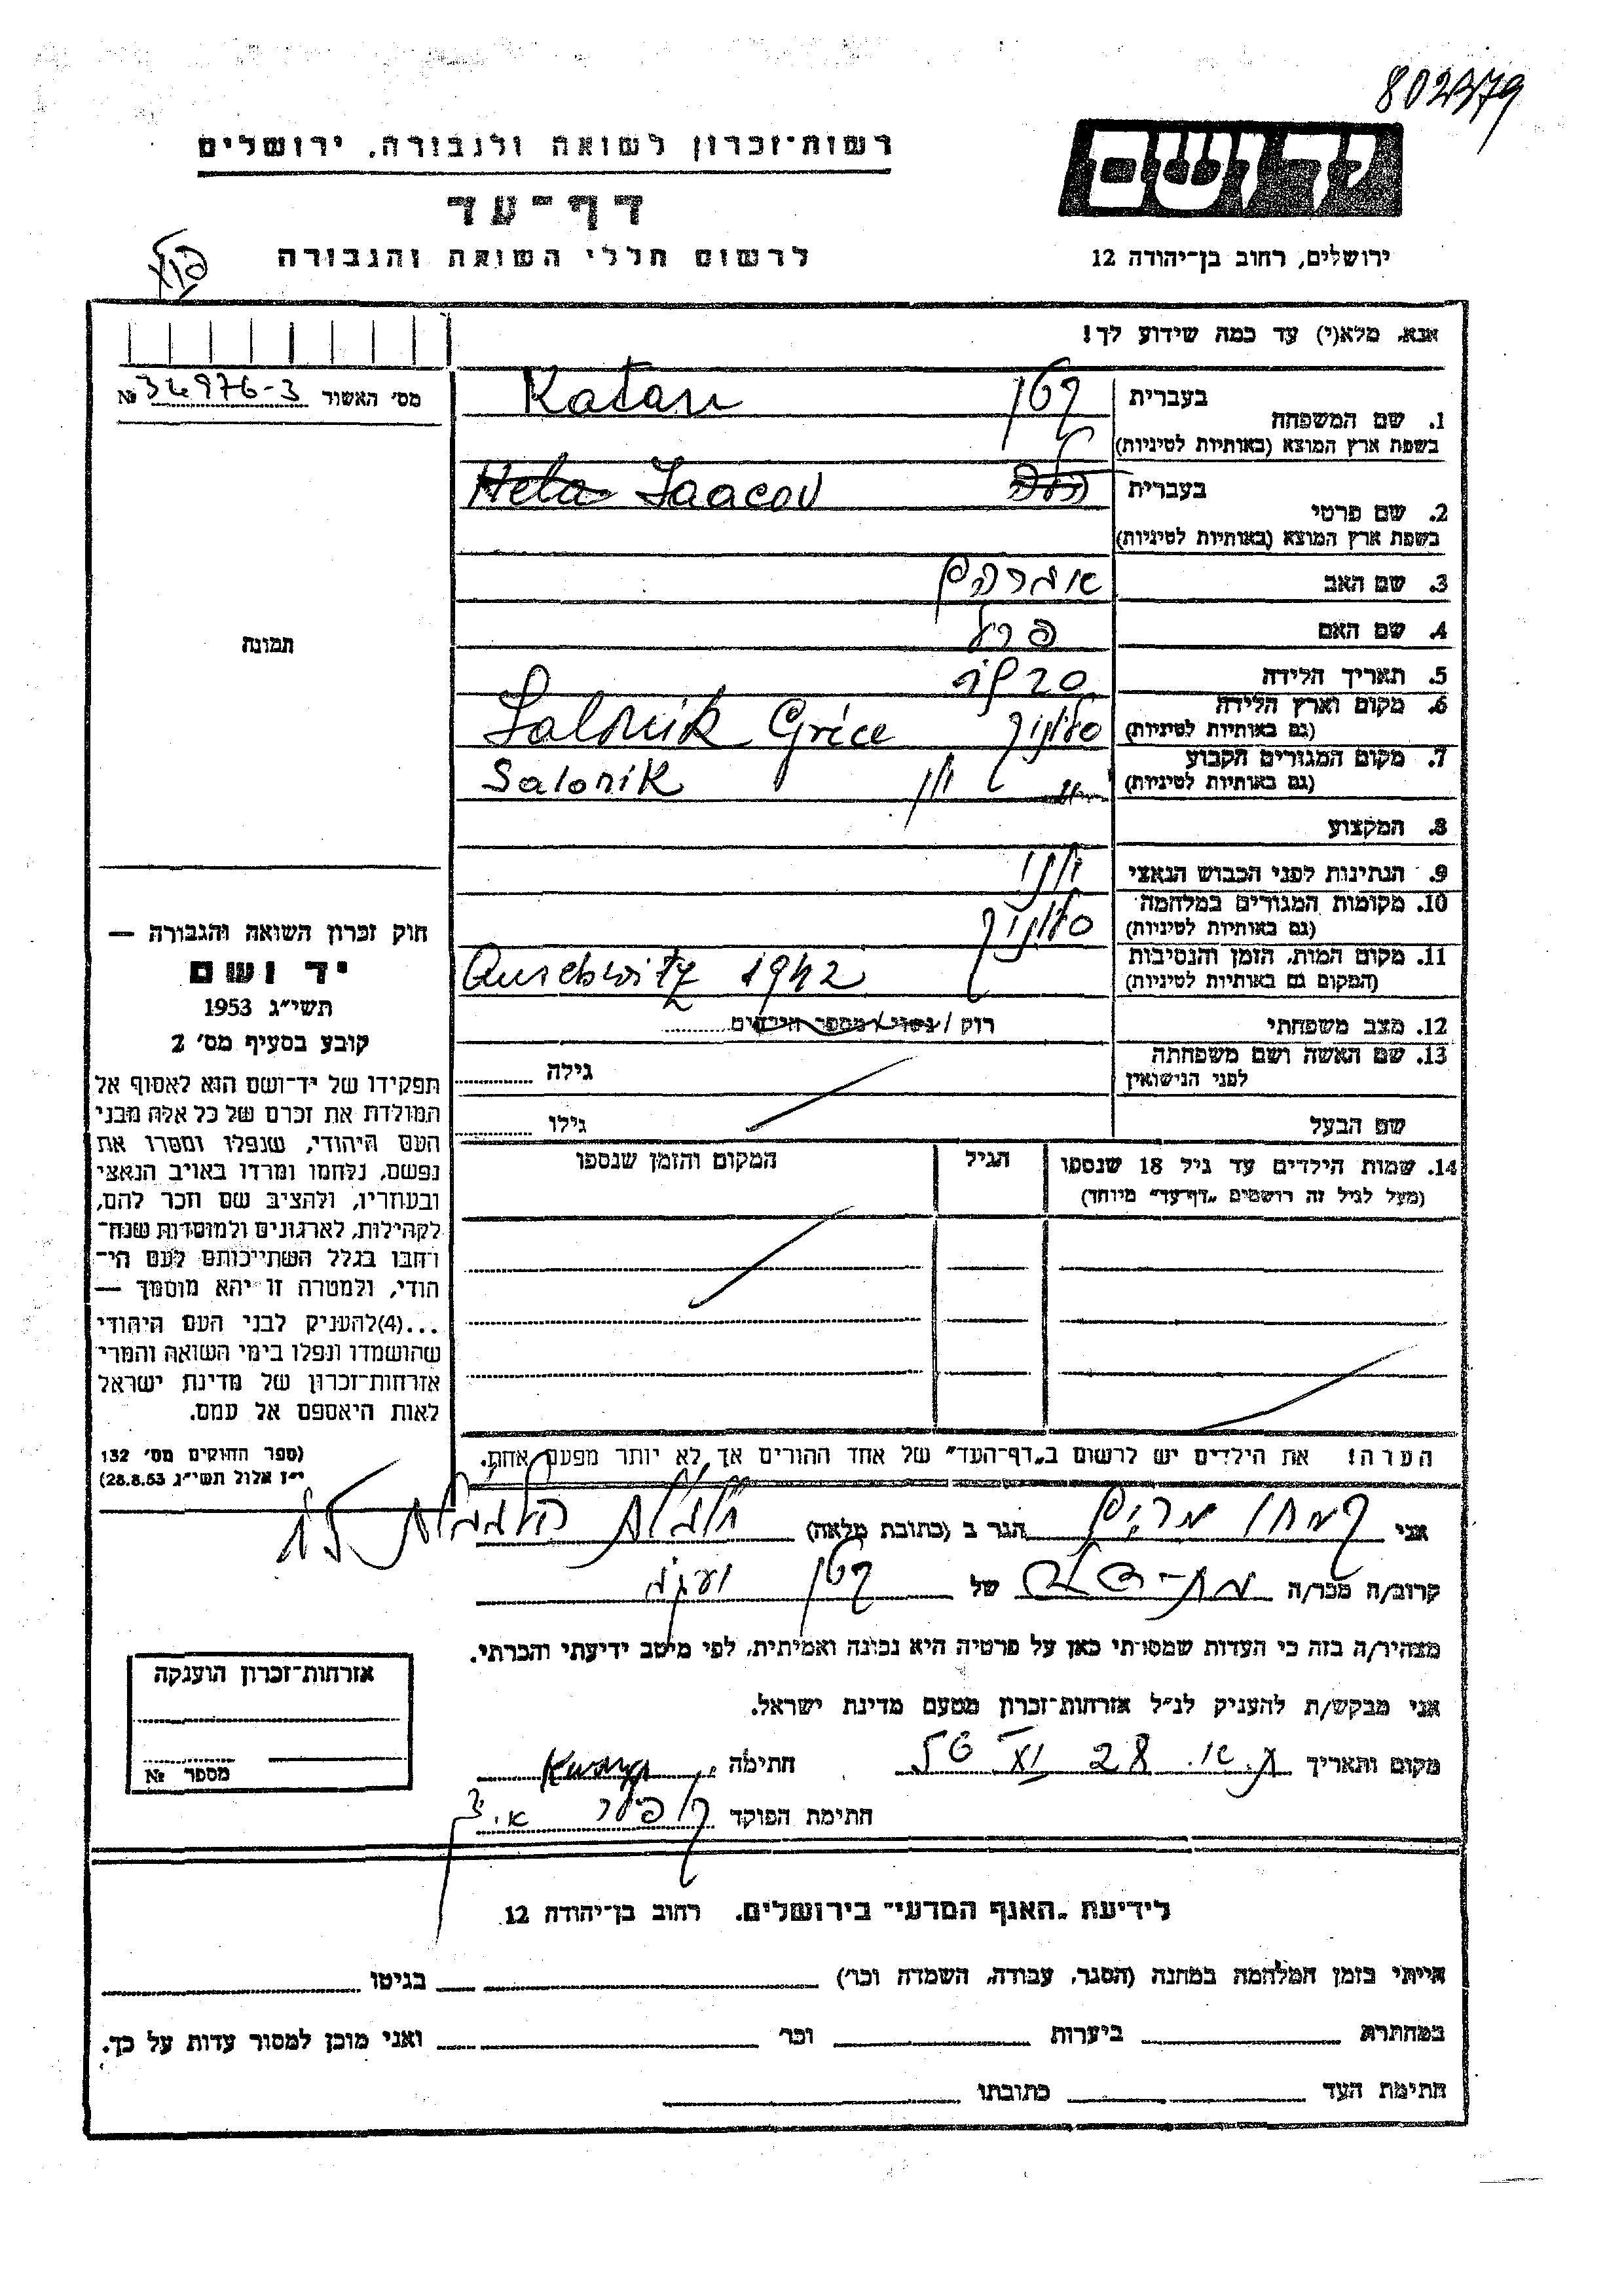 802/379
רשות־זכרון לשואה ולגבורה, ירושלים
יד ושם
דף־עד
לרשום חללי השואה והגבורה
ירושלים, רחוב בן־יהודה 12
אנא, מלא(י) עד כמה שידוע לך!
מס׳ האשור 34976-3 №
בעברית קטן Katan
1. שם המשפחה
בשפת ארץ המוצא (באותיות לטיניות)
בעברית Hela Jaacov
2. שם פרטי
בשפת ארץ המוצא (באותיות לטיניות)
3. שם האב אברהם
4. שם האם פרל
תמונה
5. תאריך הלידה
6. מקום וארץ הלידה סלוניק Salonik Grèce
(גם באותיות לטיניות)
7. מקום המגורים הקבוע יון Salonik
(גם באותיות לטיניות)
8. המקצוע
9. הנתינות לפני הכבוש הנאצי יוני
10. מקומות המגורים במלחמה סלוניק
(גם באותיות לטיניות)
11. מקום המות, הזמן והנסיבות Auschwitz 1942
(המקום גם באותיות לטיניות)
12. מצב משפחתי רוק/נשוי/מספר הילדים
13. שם האשה ושם משפחתה גילה
לפני הנישואין
שם הבעל גילו
14. שמות הילדים עד גיל 18 שנספו הגיל המקום והזמן שנספו
(מעל לגיל זה רושמים „דף־עד” מיוחד)
חוק זכרון השואה והגבורה —
יד ושם
תשי״ג 1953
קובע בסעיף מס׳ 2
תפקידו של יד־ושם הוא לאסוף אל
המולדת את זכרם של כל אלה מבני
העם היהודי, שנפלו ומסרו את
נפשם, נלחמו ומרדו באויב הנאצי
ובעוזריו, ולהציב שם וזכר להם,
לקהילות, לארגונים ולמוסדות שנח־
רחבו בגלל השתייכותם לעם הי־
הודי, ולמטרה זו יהא מוסמך —
...(4)להעניק לבני העם היהודי
שהושמדו ונפלו בימי השואה והמרי
אזרחות־זכרון של מדינת ישראל
לאות היאספם אל עמם.
(ספר החוקים מס׳ 132
י״ז אלול תשי״ג 28.8.53)
הערה! את הילדים יש לרשום ב„דף־העד” של אחד ההורים אך לא יותר מפעם אחת.
אני קמחי מרים הגר ב (כתובת מלאה)
קרוב/ה מכר/ה של קטן יעקב
מצהיר/ה בזה כי העדות שמסרתי כאן על פרטיה היא נכונה ואמיתית, לפי מיטב ידיעתי והכרתי.
אני מבקש/ת להעניק לנ״ל אזרחות־זכרון מטעם מדינת ישראל.
מקום ותאריך ת.א. 28 חתימה
חתימת הפוקד
אזרחות־זכרון הוענקה
מספר №
לידיעת „האגף המדעי” בירושלים, רחוב בן־יהודה 12
הייתי בזמן המלחמה במחנה (הסגר, עבודה, השמדה וכר׳) בגיטו
במחתרת ביערות וכר׳ ואני מוכן למסור עדות על כך.
חתימת העד כתובתו